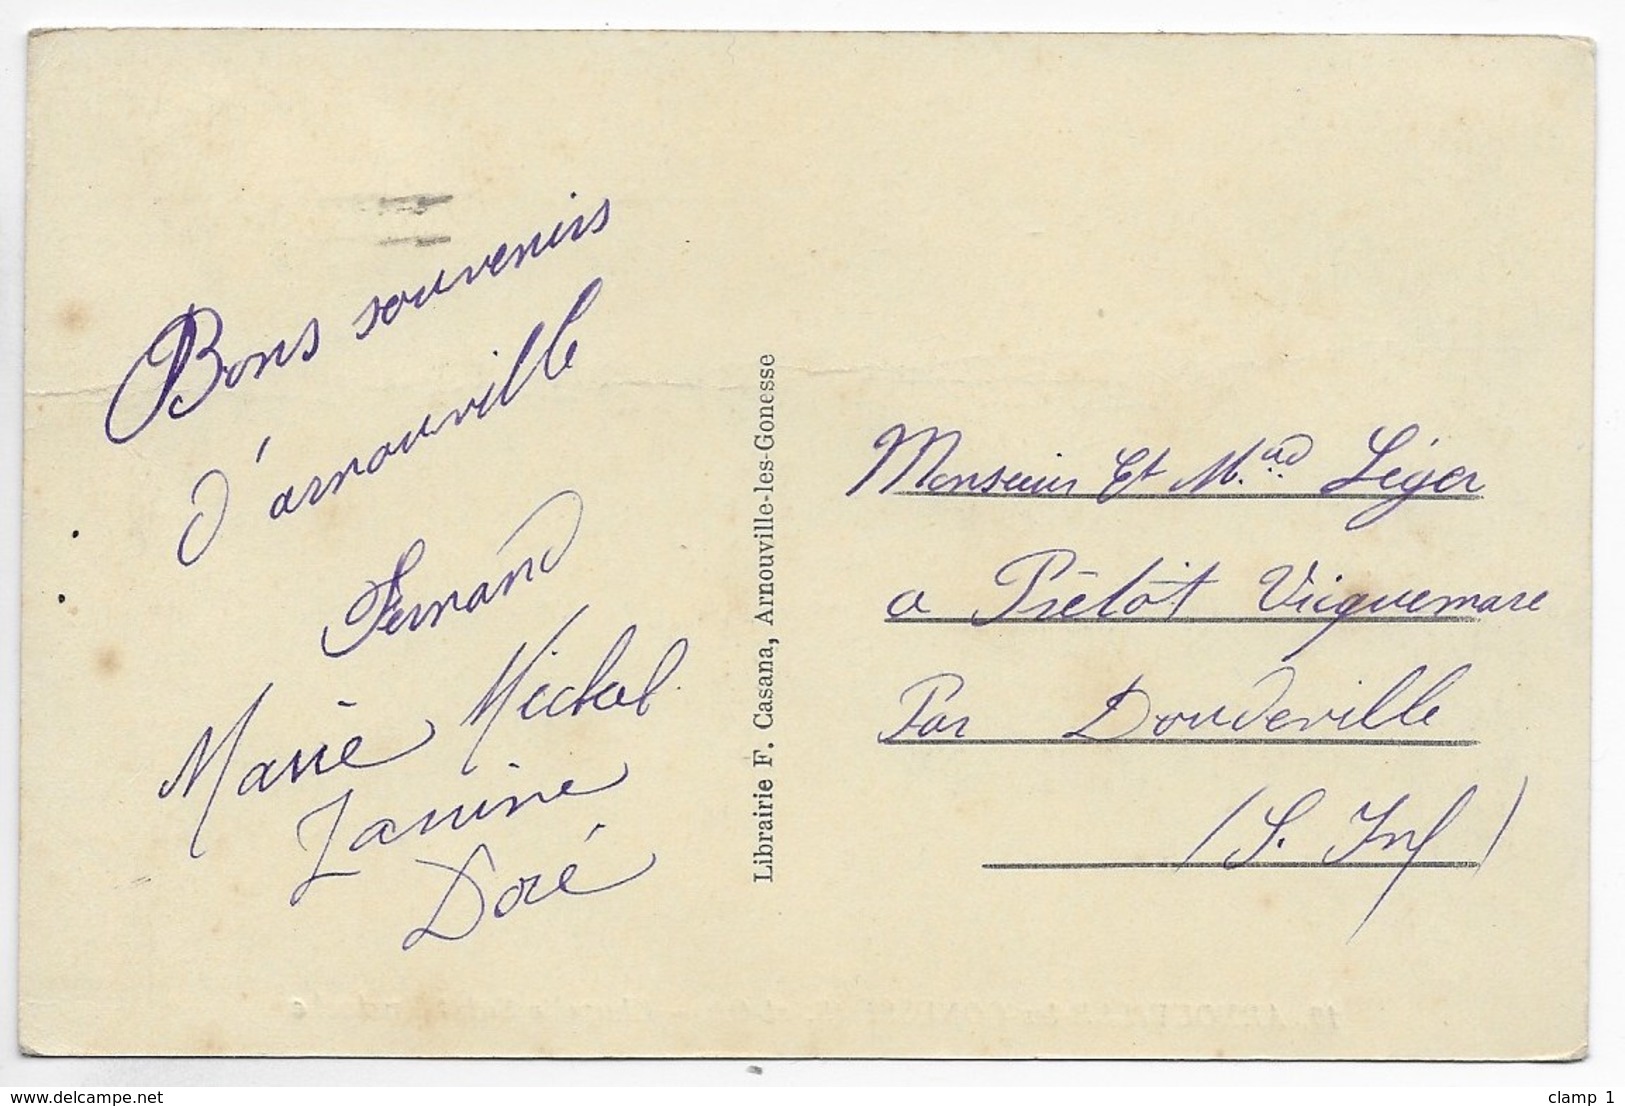 Bons souvenirs
d'arnouville
Fernand
Marie Michel
Janine
Doré
Librairie F. Casana, Arnouville-les-Gonesse
Monsieur Et Léger
a Prétôt Vicquemare
Par Doudeville
(S. Inf)
www.delcampe.net
clamp 1